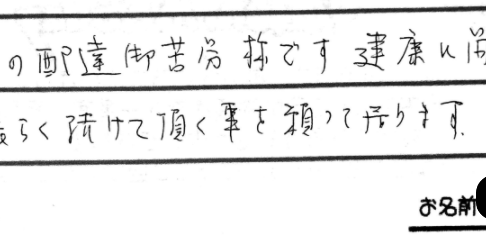 の配達御苦労様です 健康に
らく続けて頂く事を願って居ります.
お名前